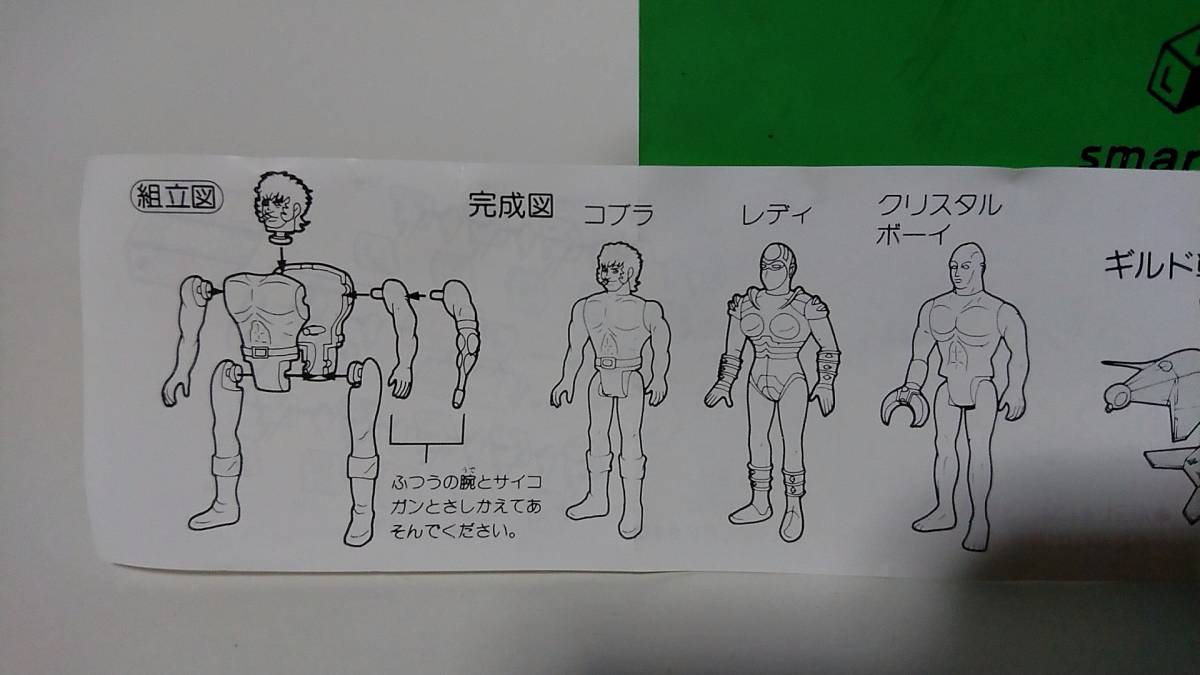 組立図
完成図
コブラ
レディ
クリスタル
ボーイ
ギルド
ふつうの腕とサイコ
うで
ガンとさしかえてあ
そんでください。
smar
L